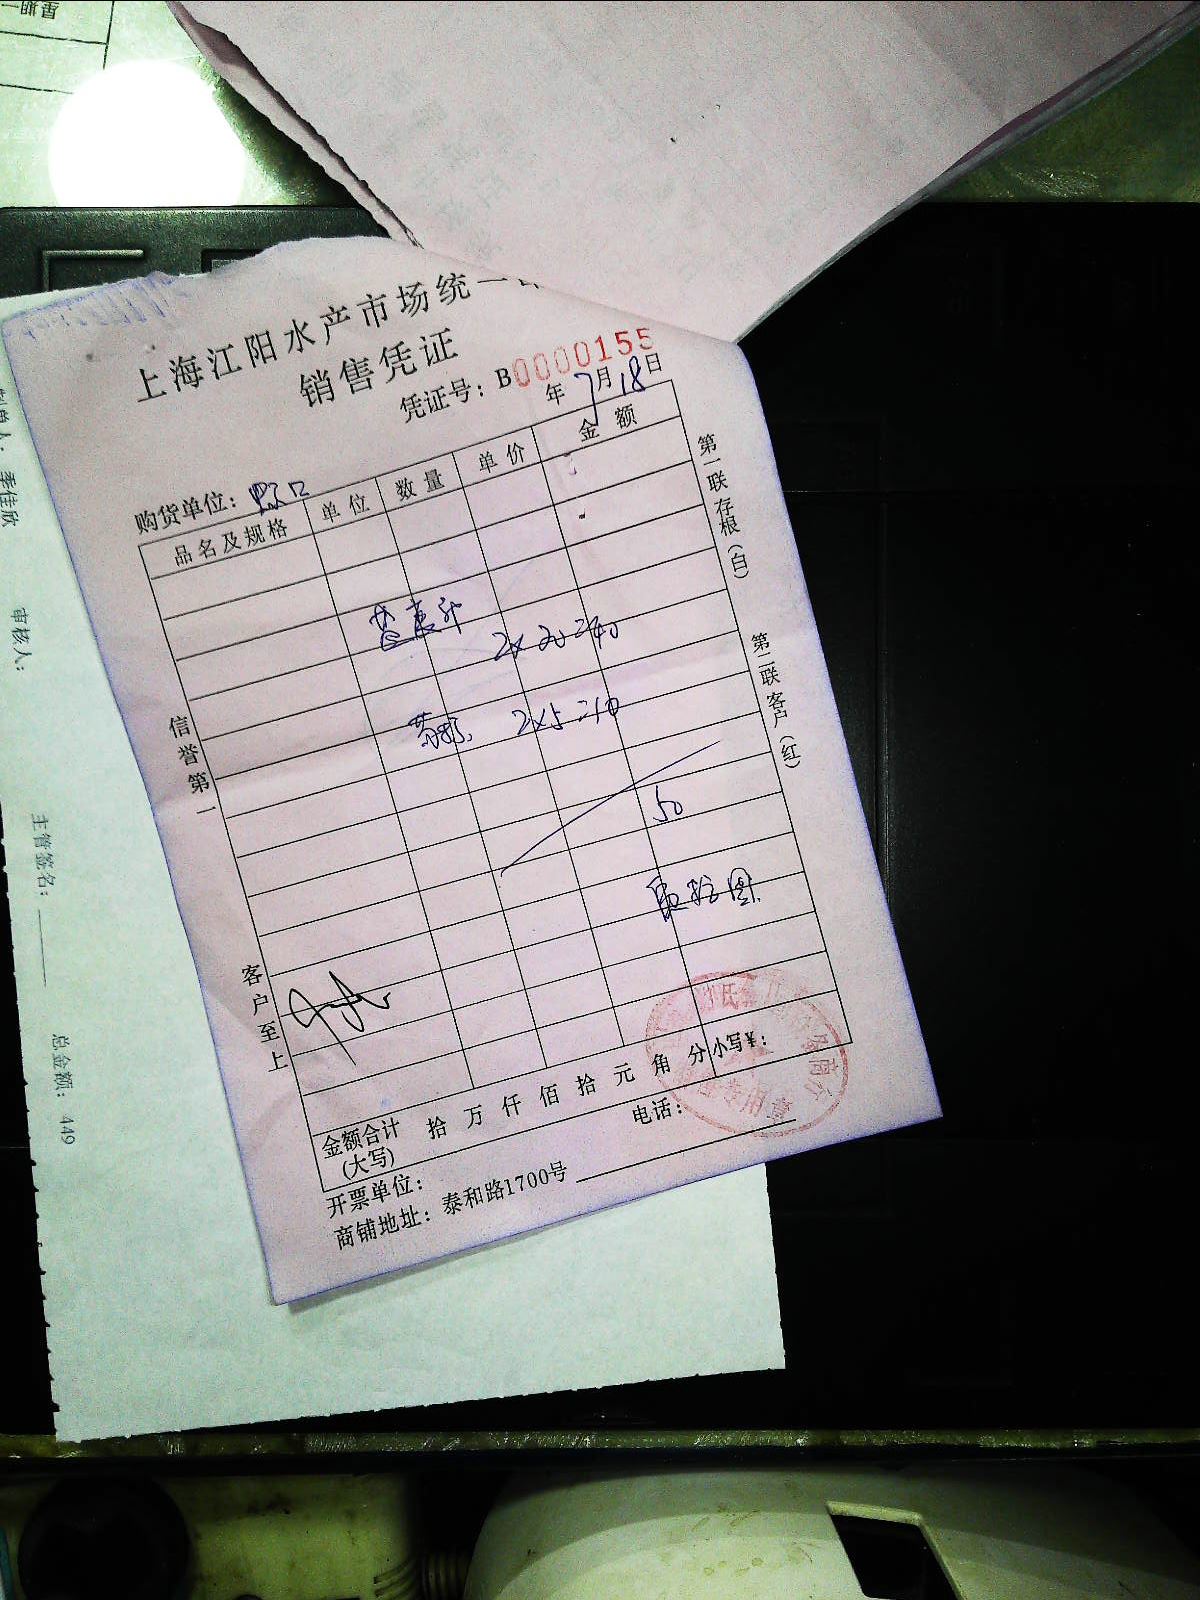 星期一
上海江阳水产市场统一
销售凭证
凭证号：B0000155
年7月18日
购货单位：虹口
品名及规格 单位 数量 单价 金额
2×20=40
2×5=10
50
伍拾圆
金额合计(大写) 拾 万 仟 佰 拾 元 角 分 小写¥：
开票单位： 电话：
商铺地址：泰和路1700号
信誉第一
客户至上
第一联存根（白）
第二联客户（红）
季佳欣
审核人：
主管签名：
总金额：449